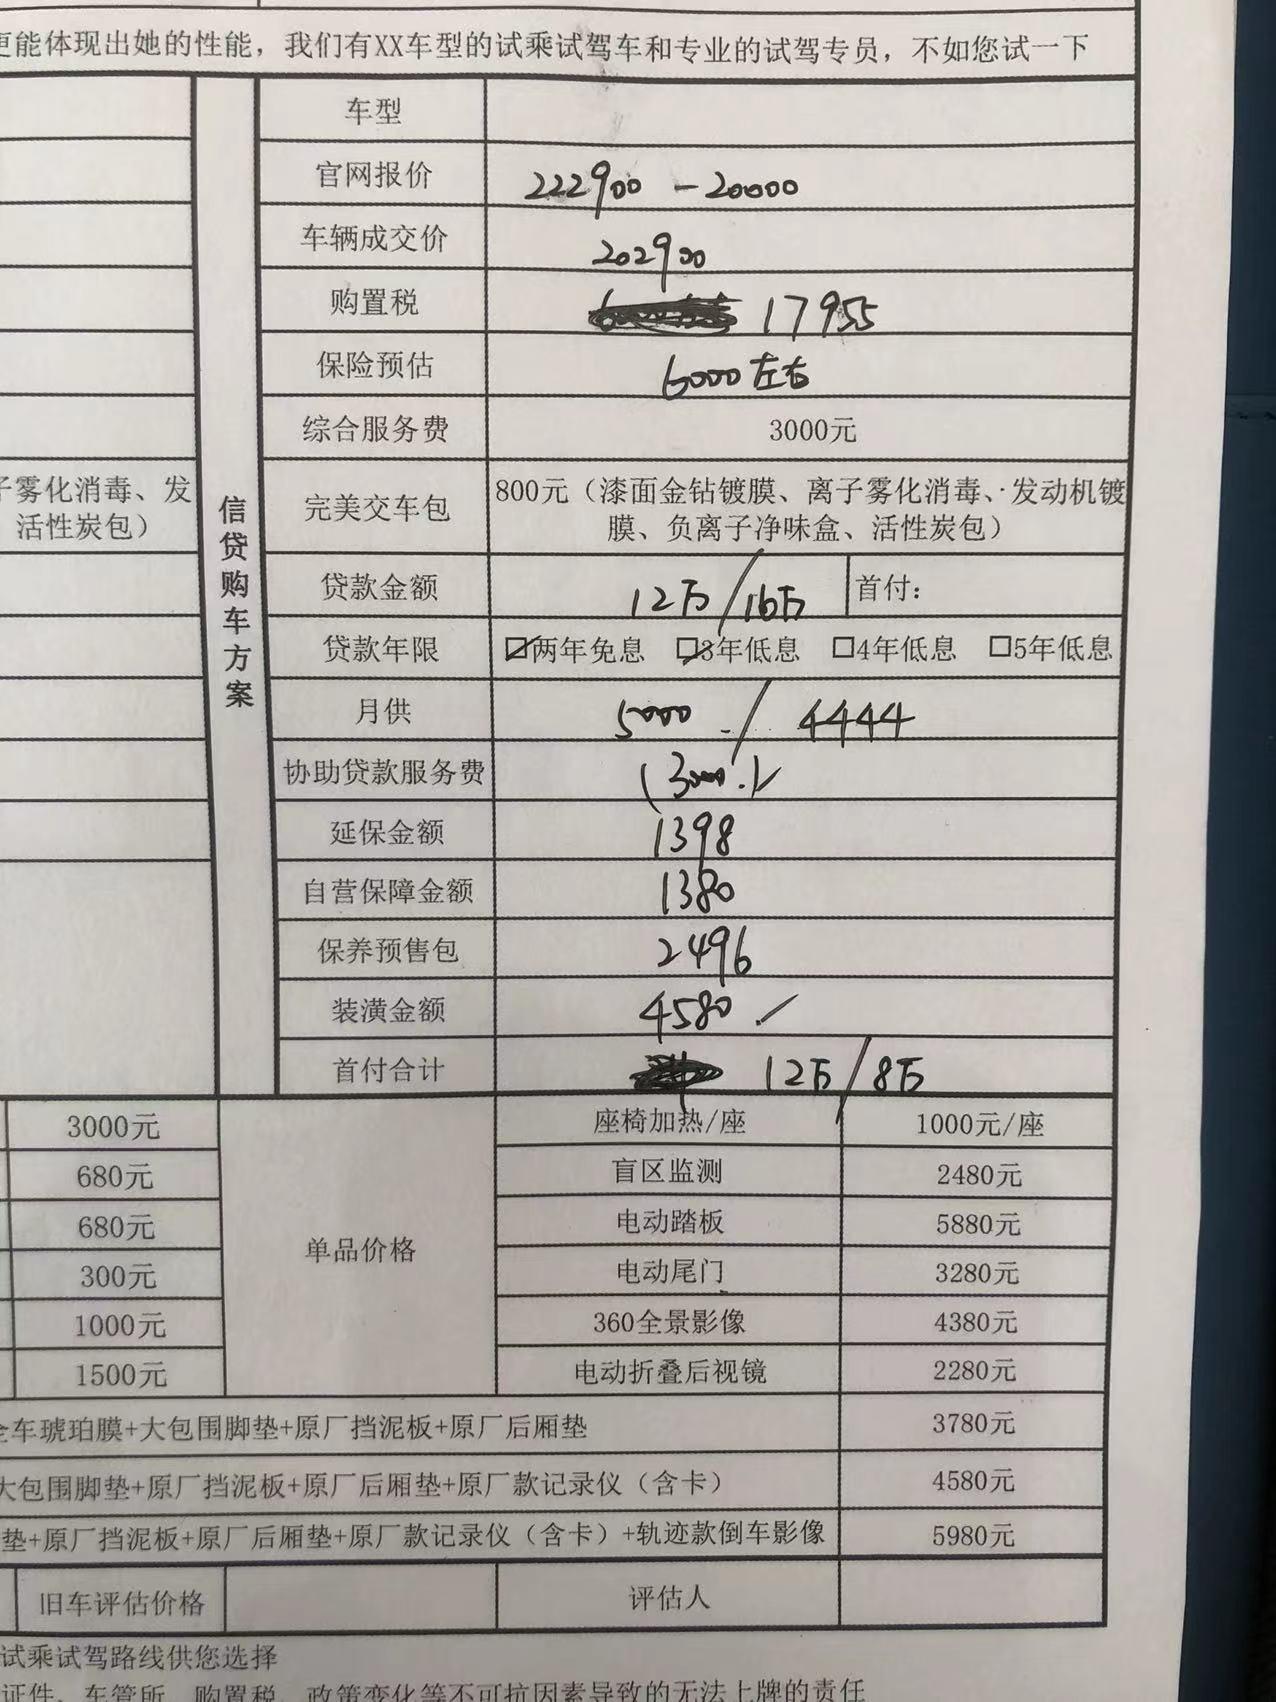 更能体现出她的性能，我们有XX车型的试乘试驾车和专业的试驾专员，不如您试一下
车型
官网报价 222900 -20000
车辆成交价 202900
购置税 17955
保险预估 6000左右
综合服务费 3000元
子雾化消毒、发
活性炭包）
信贷购车方案
完美交车包 800元（漆面金钻镀膜、离子雾化消毒、发动机镀
膜、负离子净味盒、活性炭包）
贷款金额 12万/16万 首付：
贷款年限 ☑两年免息 ☑3年低息 □4年低息 □5年低息
月供 5000 / 4444
协助贷款服务费 (3000.)
延保金额 1398
自营保障金额 1380
保养预售包 2496
装潢金额 4580
首付合计 12万/8万
3000元 座椅加热/座 1000元/座
680元 盲区监测 2480元
680元 电动踏板 5880元
单品价格
300元 电动尾门 3280元
1000元 360全景影像 4380元
1500元 电动折叠后视镜 2280元
全车琥珀膜+大包围脚垫+原厂挡泥板+原厂后厢垫 3780元
大包围脚垫+原厂挡泥板+原厂后厢垫+原厂款记录仪（含卡） 4580元
垫+原厂挡泥板+原厂后厢垫+原厂款记录仪（含卡）+轨迹款倒车影像 5980元
旧车评估价格 评估人
试乘试驾路线供您选择
证件、车管所、购置税、政策变化等不可抗因素导致的无法上牌的责任